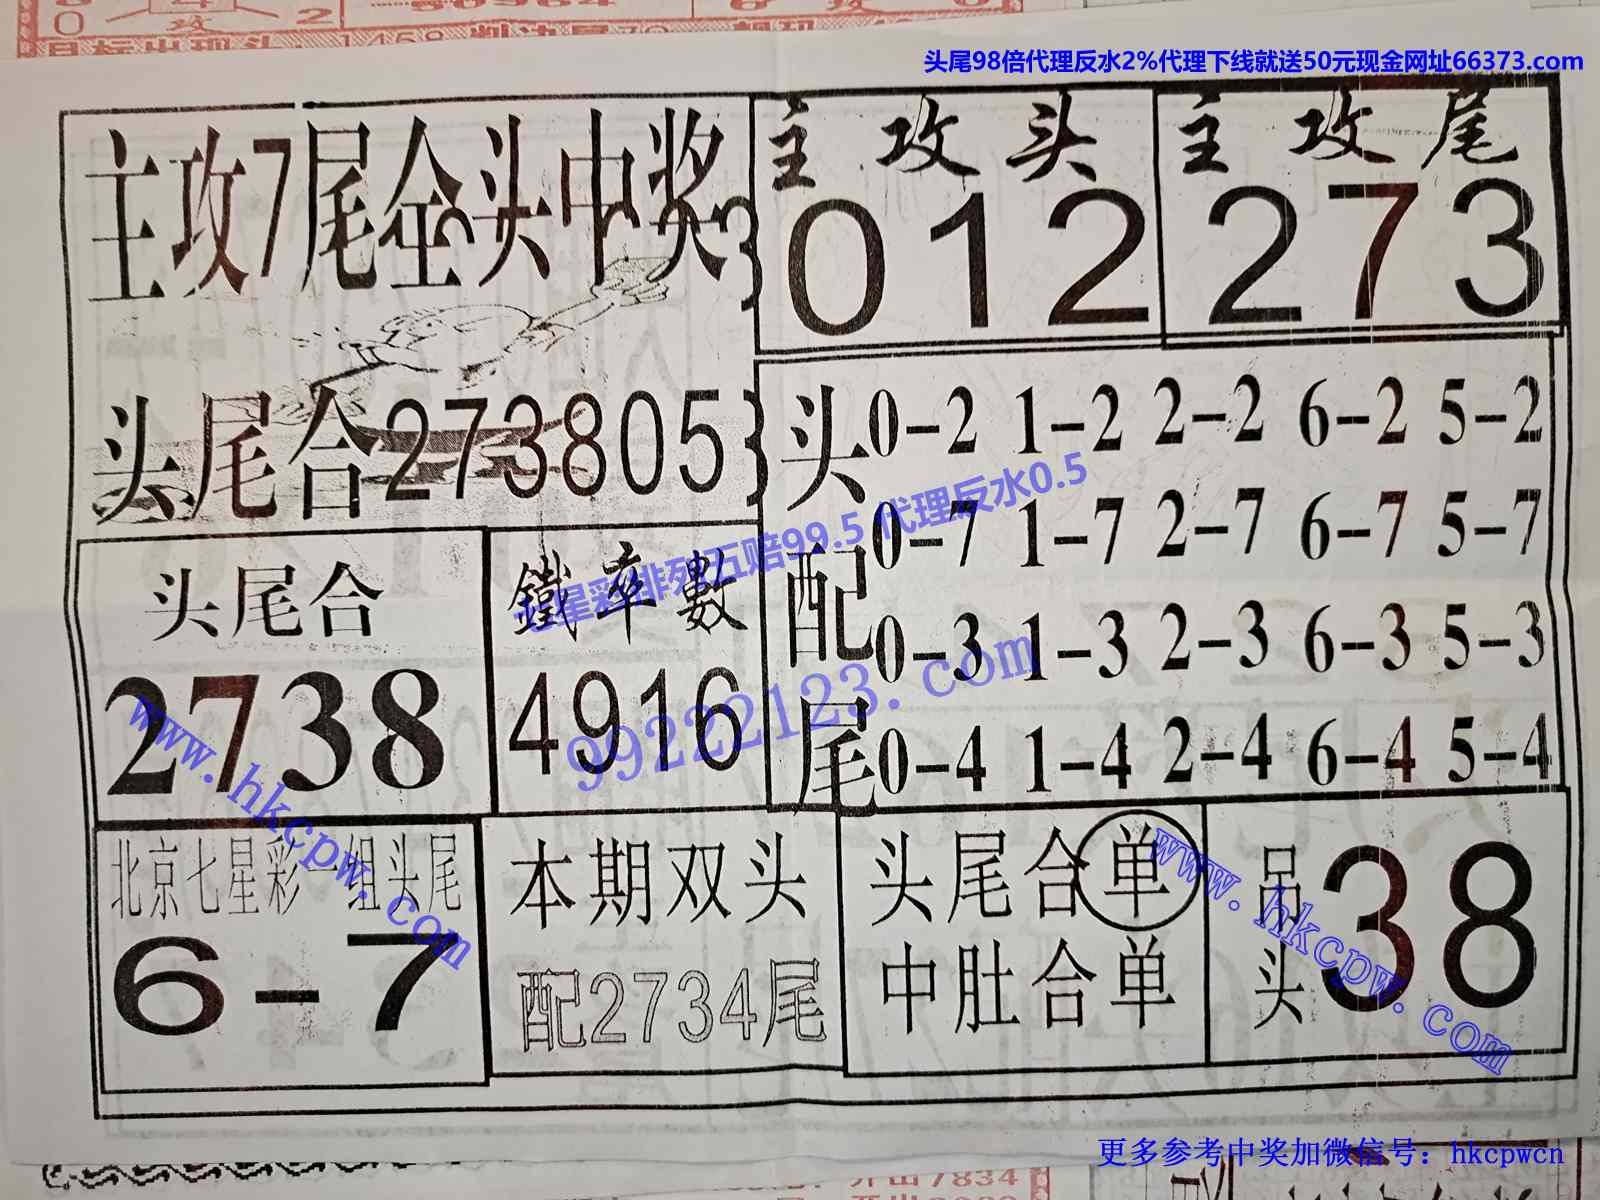 头尾98倍代理反水2%代理下线就送50元现金网址66373.com
主攻7尾全头中奖
主攻头
012
主攻尾
273
头尾合273805
头配尾
0-2 1-2 2-2 6-2 5-2
0-7 1-7 2-7 6-7 5-7
0-3 1-3 2-3 6-3 5-3
0-4 1-4 2-4 6-4 5-4
星彩排列五赔99.5 代理反水0.5
头尾合
2738
鐵率數
4916
99222123.com
www.hkcpw.com
北京七星彩一组头尾
6-7
本期双头
配2734尾
头尾合单
中肚合单
吊头38
www.hkcpw.com
更多参考中奖加微信号：hkcpwcn
开出7834